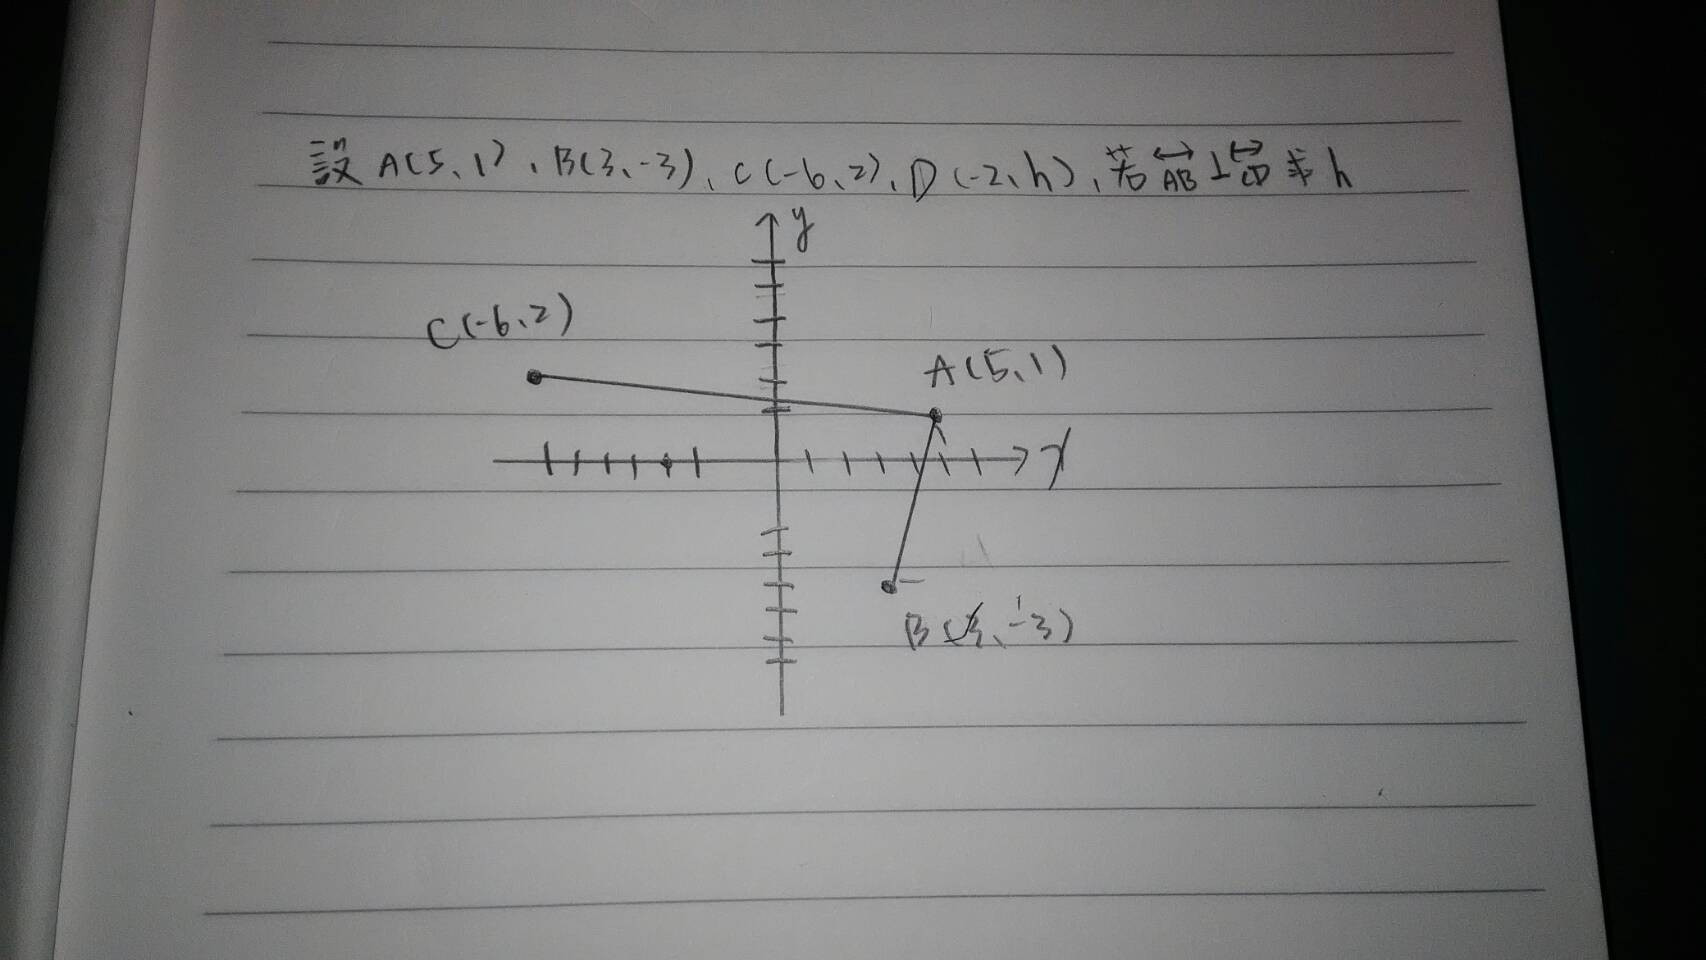 設 A(5、1)、B(3、-3)、C(-6、2)、D(-2、h)、若 AB⊥CD 求 h
y
C(-6、2)
A(5、1)
x
B(3、-3)